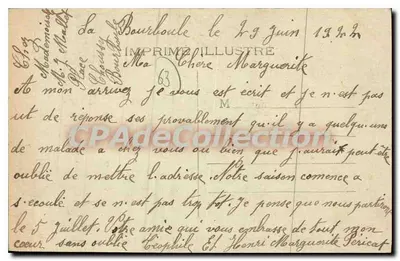 La Bourboule le 29 Juin 1922
IMPRIMÉ ILLUSTRÉ
Ma Chere Marguerite
63
A mon arrivez je vous est ecrit et je n.est pas
M
ut de reponse ses provablement qu'il y a quelqu.une
CPADeCollection
de malade a chez vous ou bien que j'aurait peut être
oublié de mettre l.adresse. Notre saison comence a
s.ecoulé et se n.est pas trop tot. Je pense que nous partirons
le 5 juillet. Votre amie qui vous embrasse de tout mon
cœur sans oublié Théophile Et Henri Marguerite Péricat
Chez
Mademoiselle
Place
Bourboule